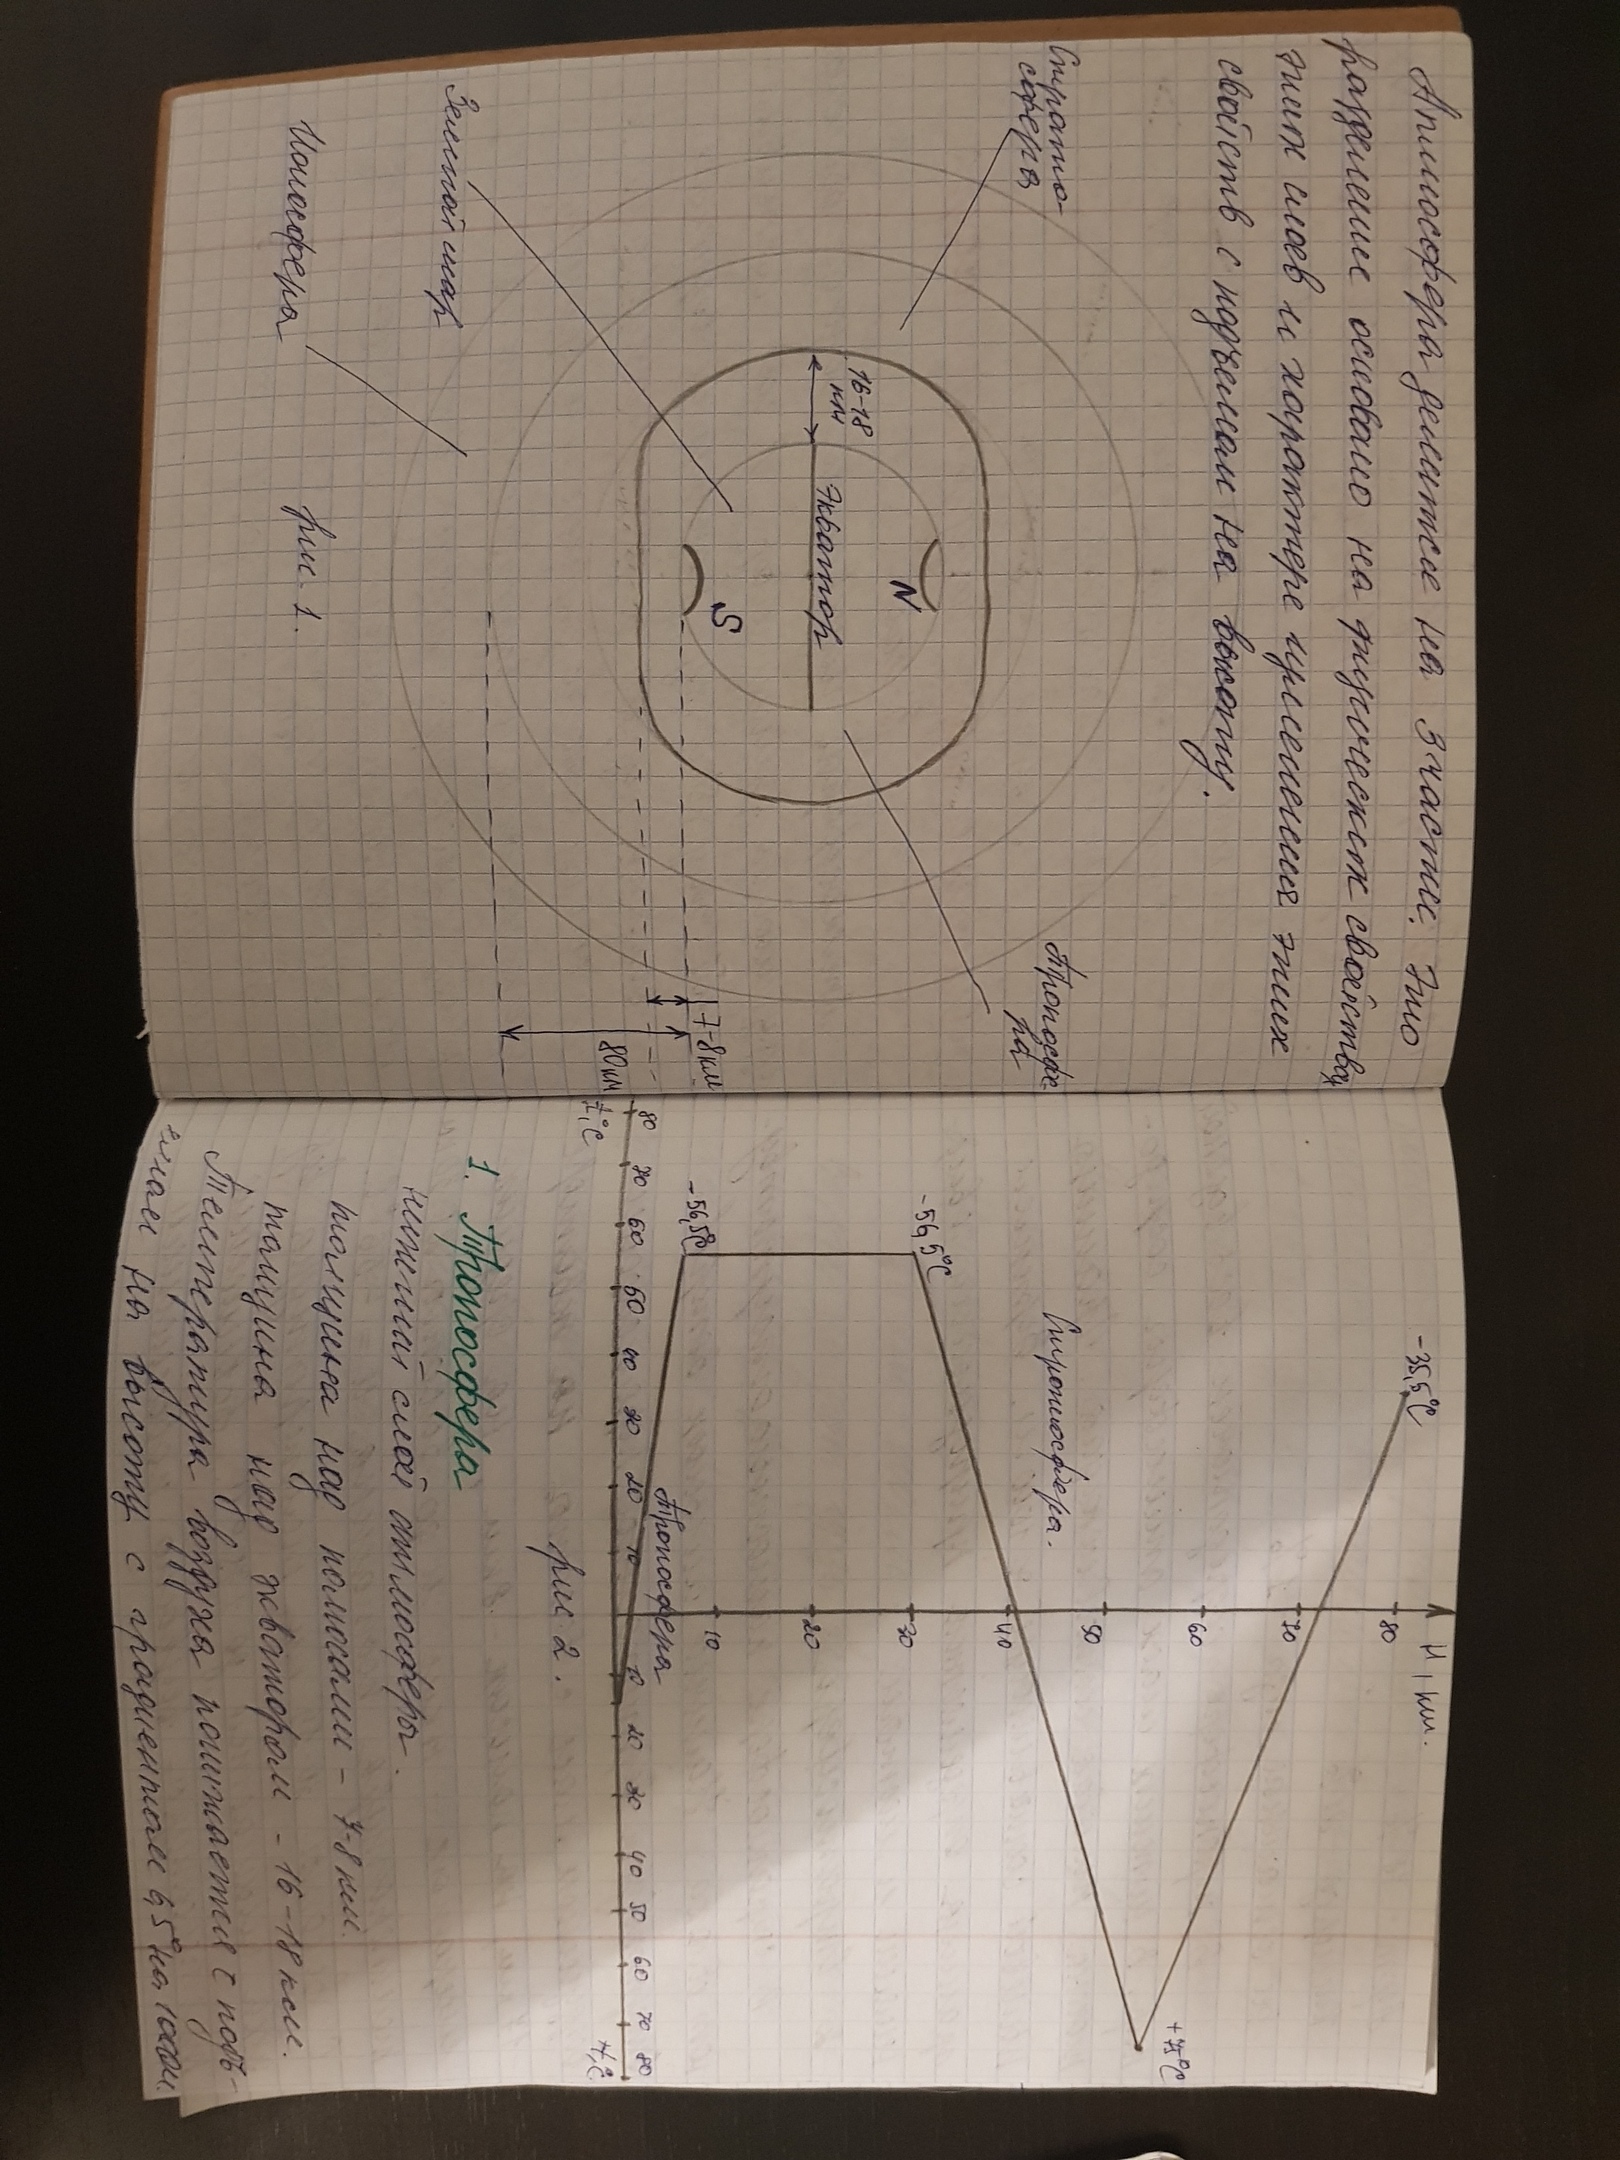 Атмосфера делится на 3 части. Это
разделение основано на физических свойствах
этих слоев и характере изменения этих
свойств с подъемом на высоту.
Страто-
сфера
Тропосфе-
ра
N
16-18
км
Экватор
S
7-8 км
80 км
Земной шар
Ионосфера
рис. 1.
-35,5°C
H, км.
80
70
60
+75°C
50
Стратосфера.
40
-56,5°C
30
20
10
-56,5°C
Тропосфера
80 70 60 50 40 30 20 10 10 20 30 40 50 60 70 80
t,°C
+t,°C
рис 2.
1. Тропосфера
нижний слой атмосферы.
толщина над полюсами - 7-8 км.
толщина над экватором - 16-18 км.
Температура воздуха понижается с подъ-
емом на высоту с градиентом 6,5° на 1000м.